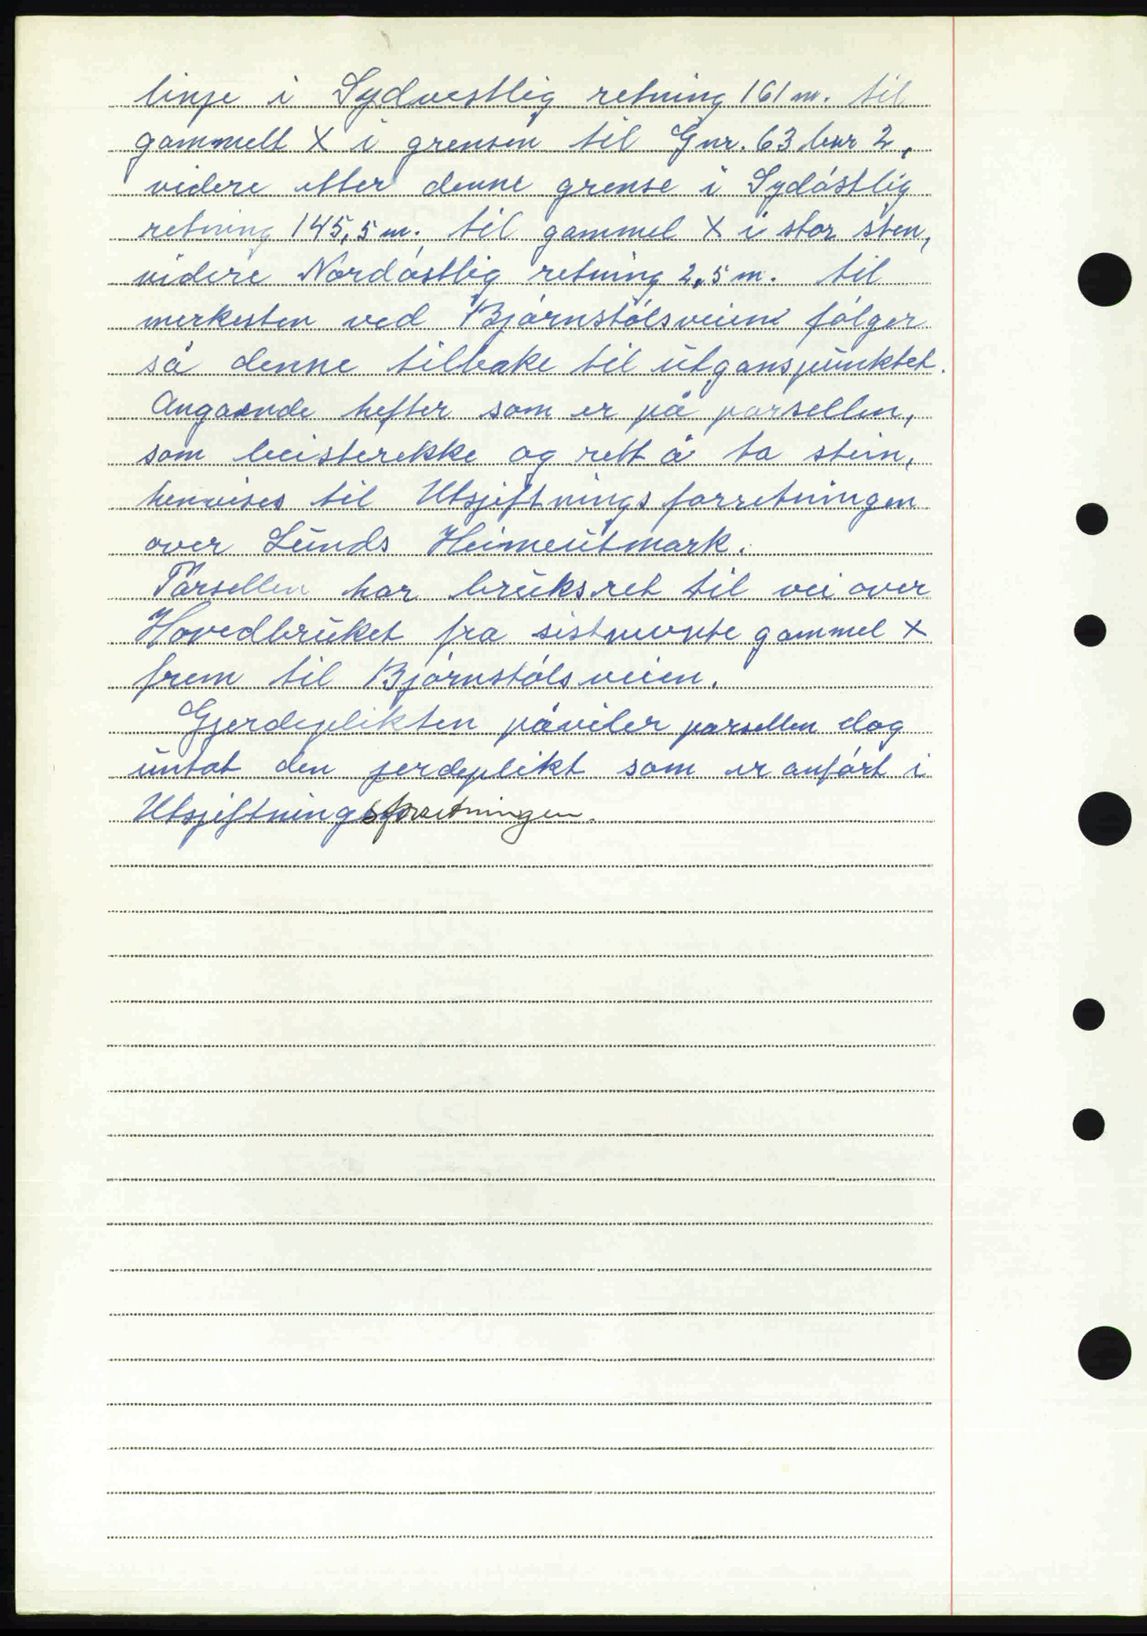 linje i Sydvestlig retning 161 m. til
gammelt X i grensen til Gnr. 63 bnr 2,
videre etter denne grense i Sydöstlig
retning 145,5 m. til gammel X i stor sten,
videre Nordöstlig retning 2,5 m. til
merkesten ved Björnstölsveien fölger
så denne tilbake til utganspunktet.
Angaende hefter som er på parsellen,
som beisterekke og rett å ta stein,
henvises til Utsjiftningsforretningen
over Lunds Heimeutmark.
Parsellen har bruksret til vei over
Hovedbruket fra sistnevnte gammel X
frem til Björnstölsveien.
Gjerdeplikten påviler parsellen dog
untat den jerdeplikt som er anfört i
Utsjiftningsforretningen.